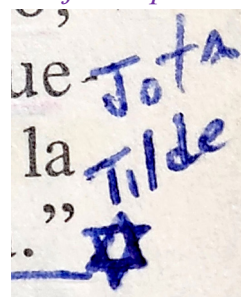 ue Jota
la Tilde
”
.